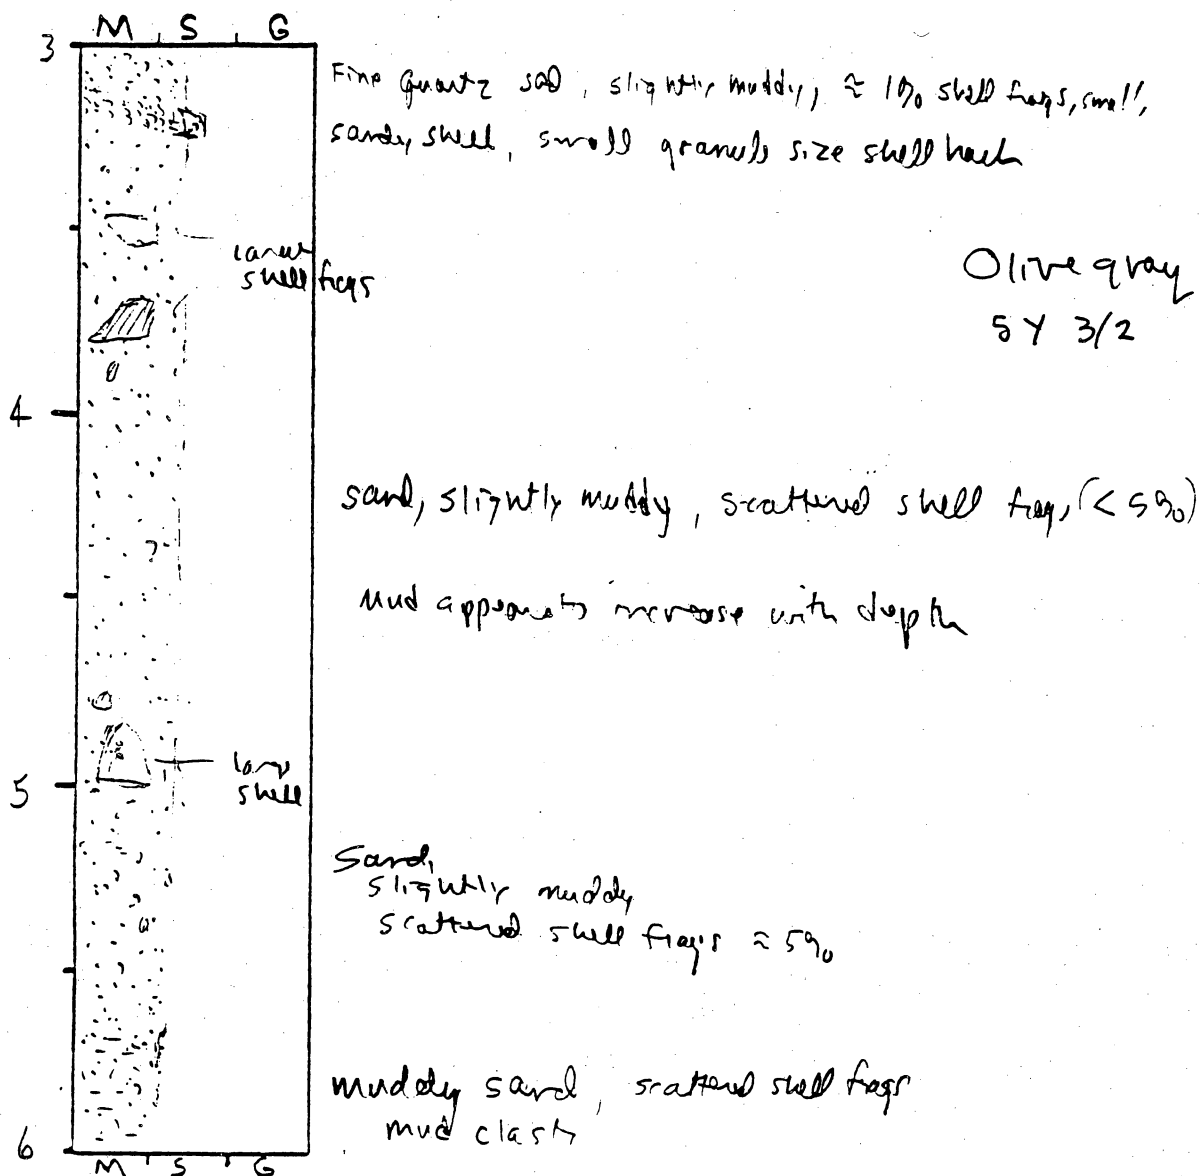 M S G
3
Fine quartz sad, slightly muddy, ≈ 1% shell frags, small,
sandy shell, small granule size shell hash
large
shell frags
Olive gray
5 Y 3/2
4
sand, slightly muddy, scattered shell frags (< 5%)
Mud appears to increase with depth
large
shell
5
Sand,
slightly muddy
scattered shell frags ≈ 5%
muddy sand, scattered shell frags
mud clasts
6
M S G